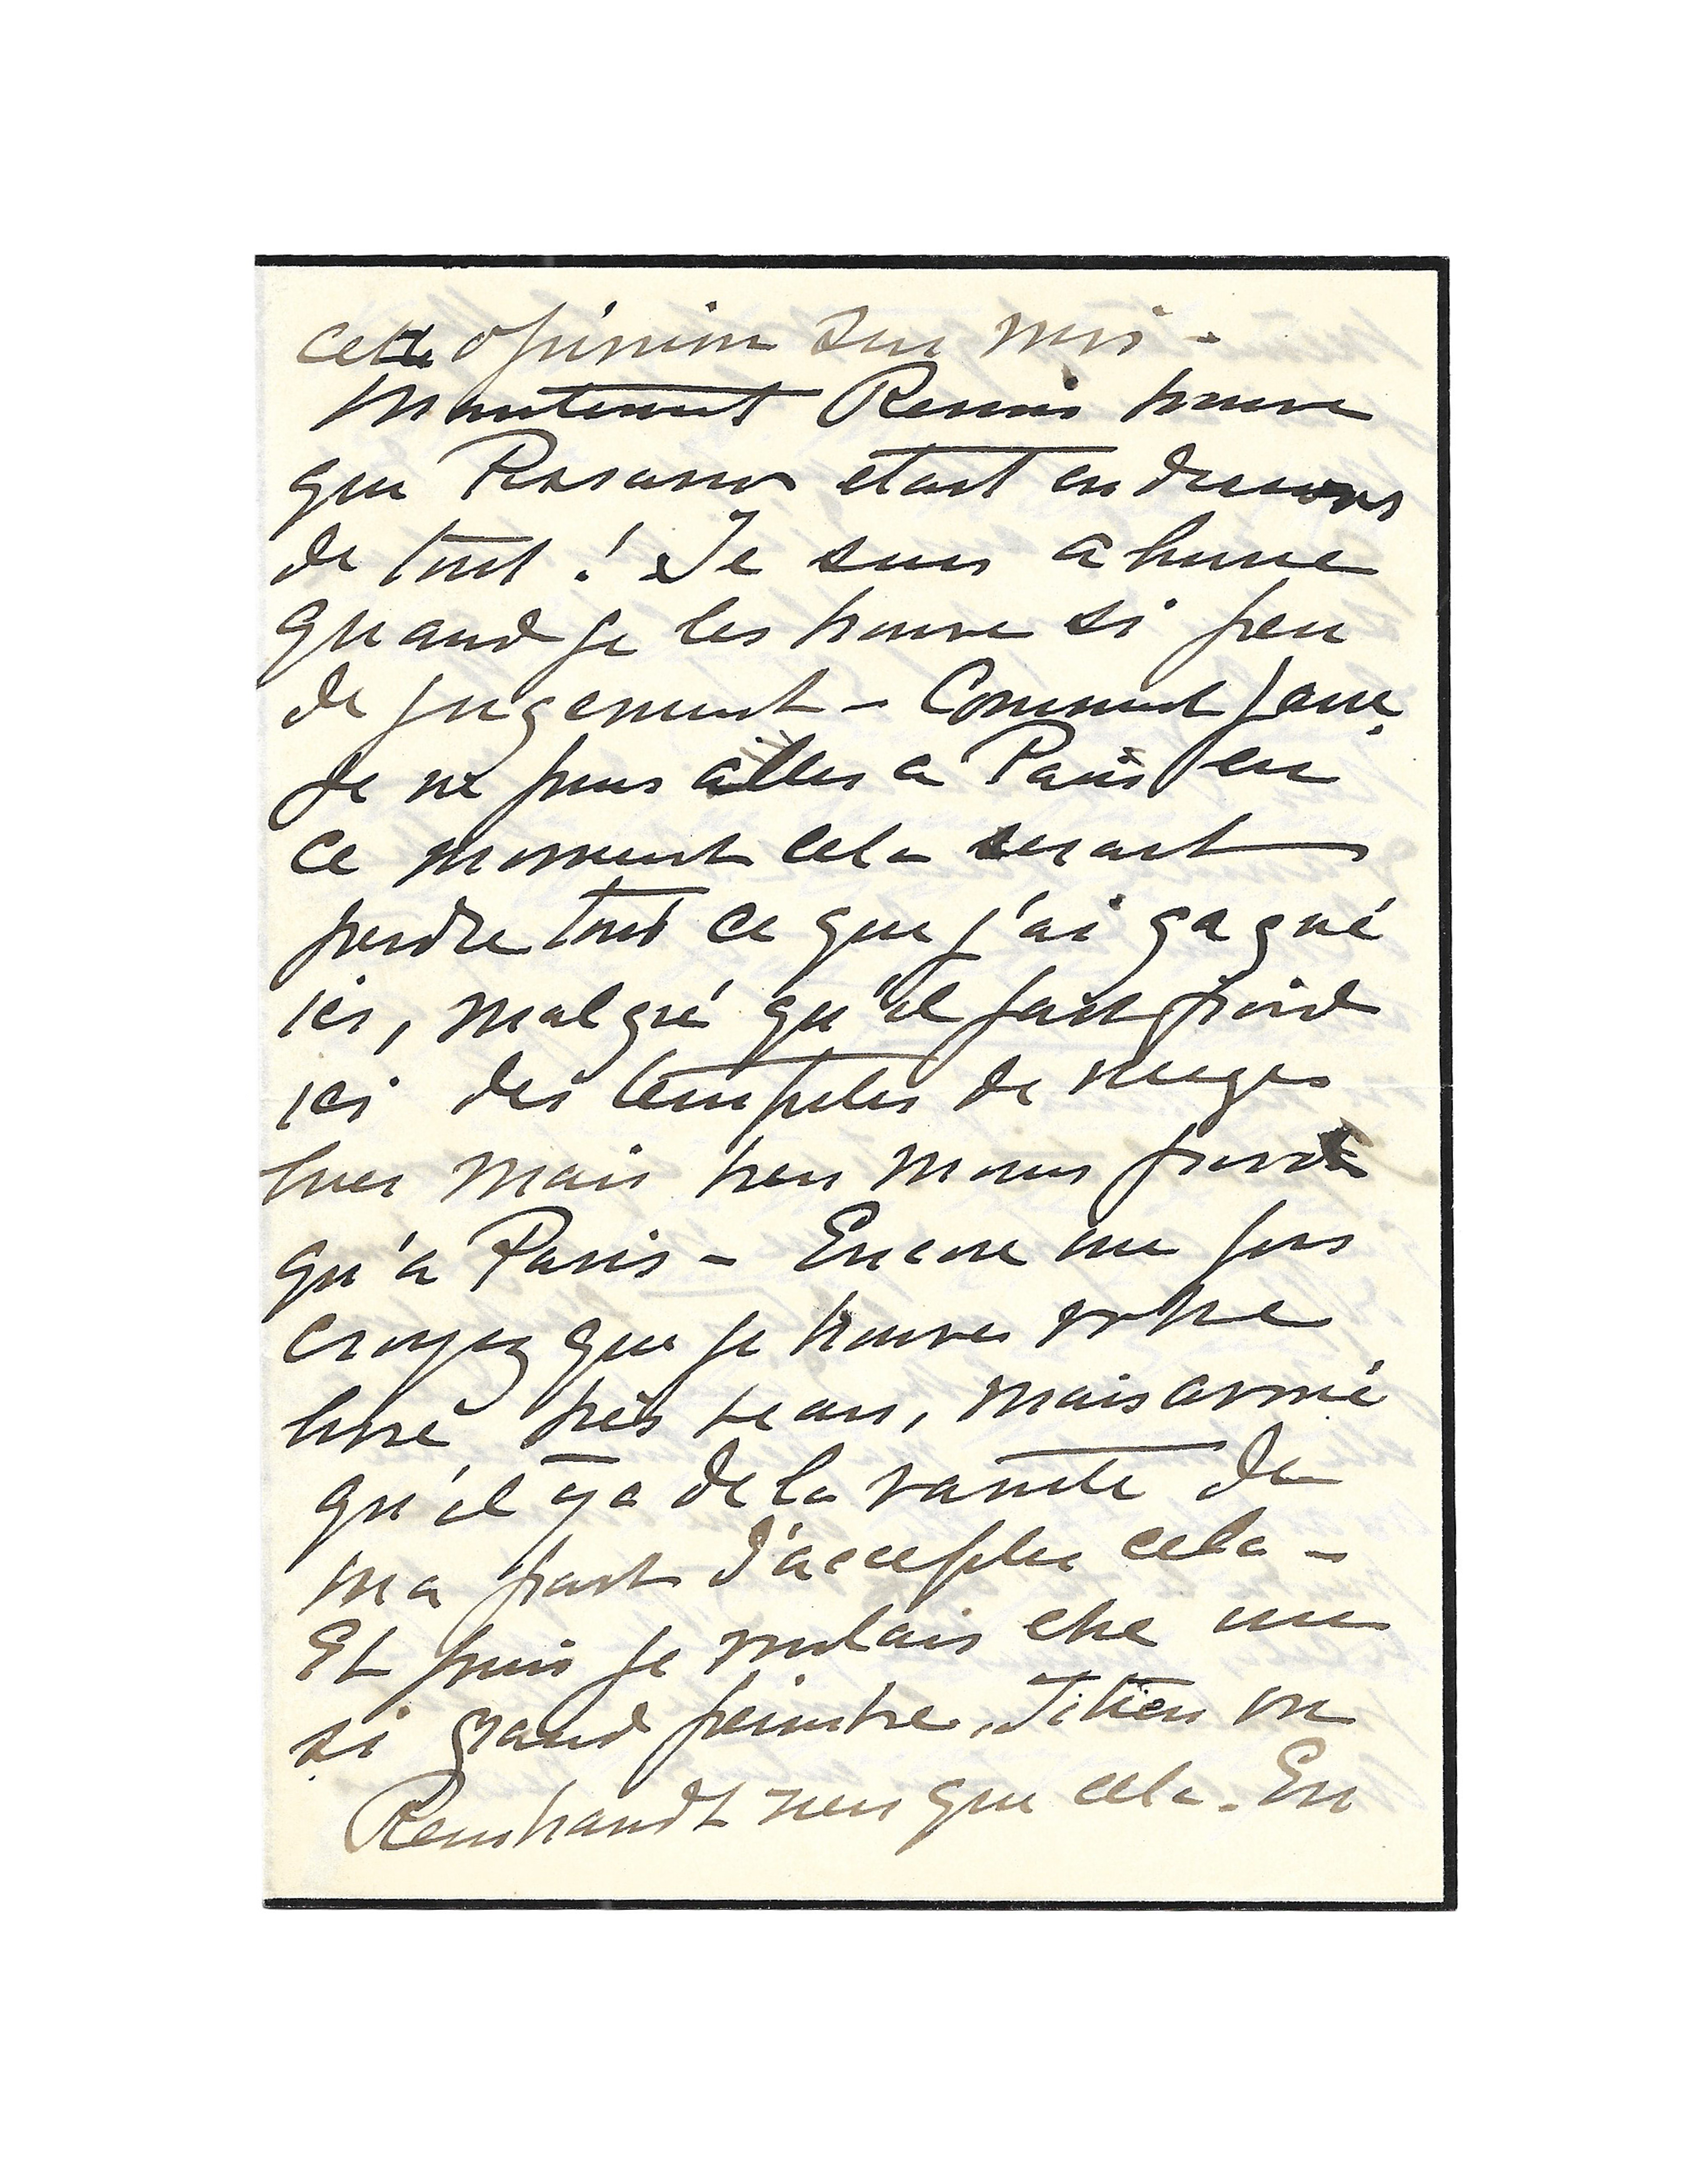 cette opinion sur moi -
Maintenant Renoir trouve
que Pissarro etait en dessous
de tout ! Je suis ahurie
quand je les trouve si peu
de jugement - Comment faire.
Je ne puis aller a Paris en
ce moment cela serait
perdre tout ce que j'ai gagné
ici, malgré qu'il fait froid
ici des tempetes de neiges
hier mais bien moins froid
qu'a Paris - Encore une fois
croyez que je trouve votre
livre très beau, mais avoué
qu'il y a de la vanité de
ma part d'accepter cela -
Et puis je voulais etre un
si grand peintre, Titien ou
Rembrandt rien que cela. En